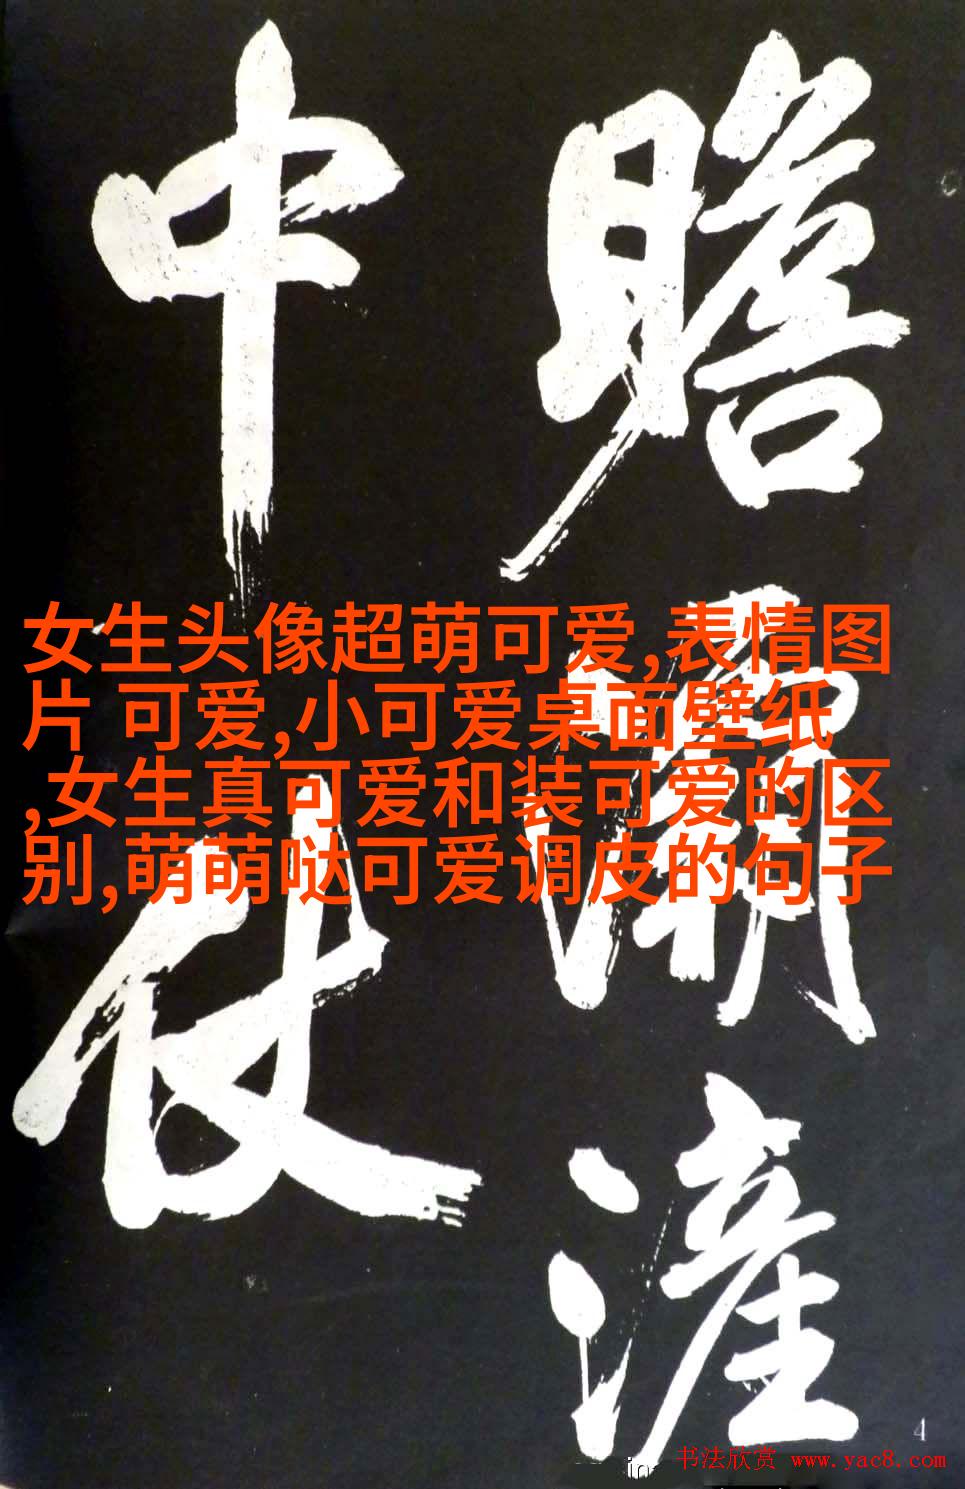 瞻灞滻
中仗
女生头像超萌可爱,表情图
片 可爱,小可爱桌面壁纸
,女生真可爱和装可爱的区
别,萌萌哒可爱调皮的句子
4
书法欣赏 www.yac8.com